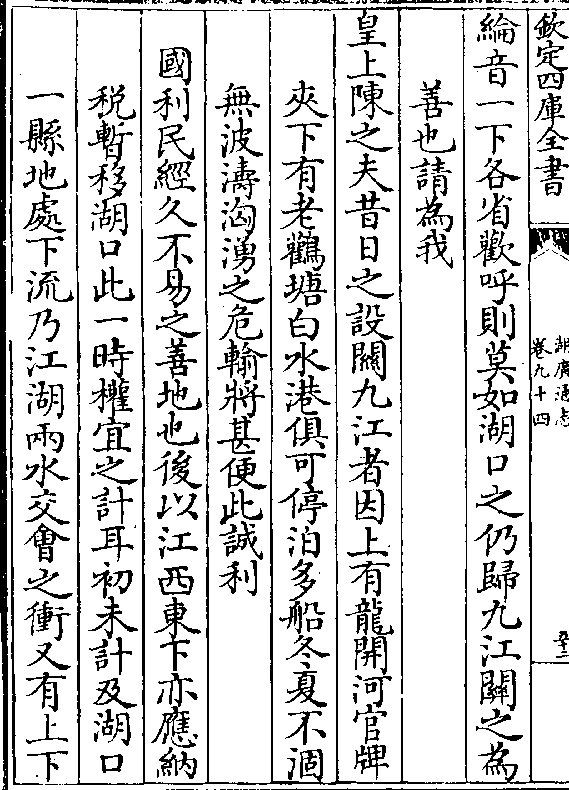 欽定四庫全書
湖廣通志
卷九十四
綸音一下各省歡呼則莫如湖口之仍歸九江關之為
善也請為我
皇上陳之夫昔日之設關九江者因上有龍開河官牌
夾下有老鸛塘白水港俱可停泊多船冬夏不涸
無波濤洶湧之危輸將甚便此誠利
國利民經久不易之善地也後以江西東下亦應納
稅暫移湖口此一時權宜之計耳初未計及湖口
一縣地處下流乃江湖兩水交會之衝又有上下